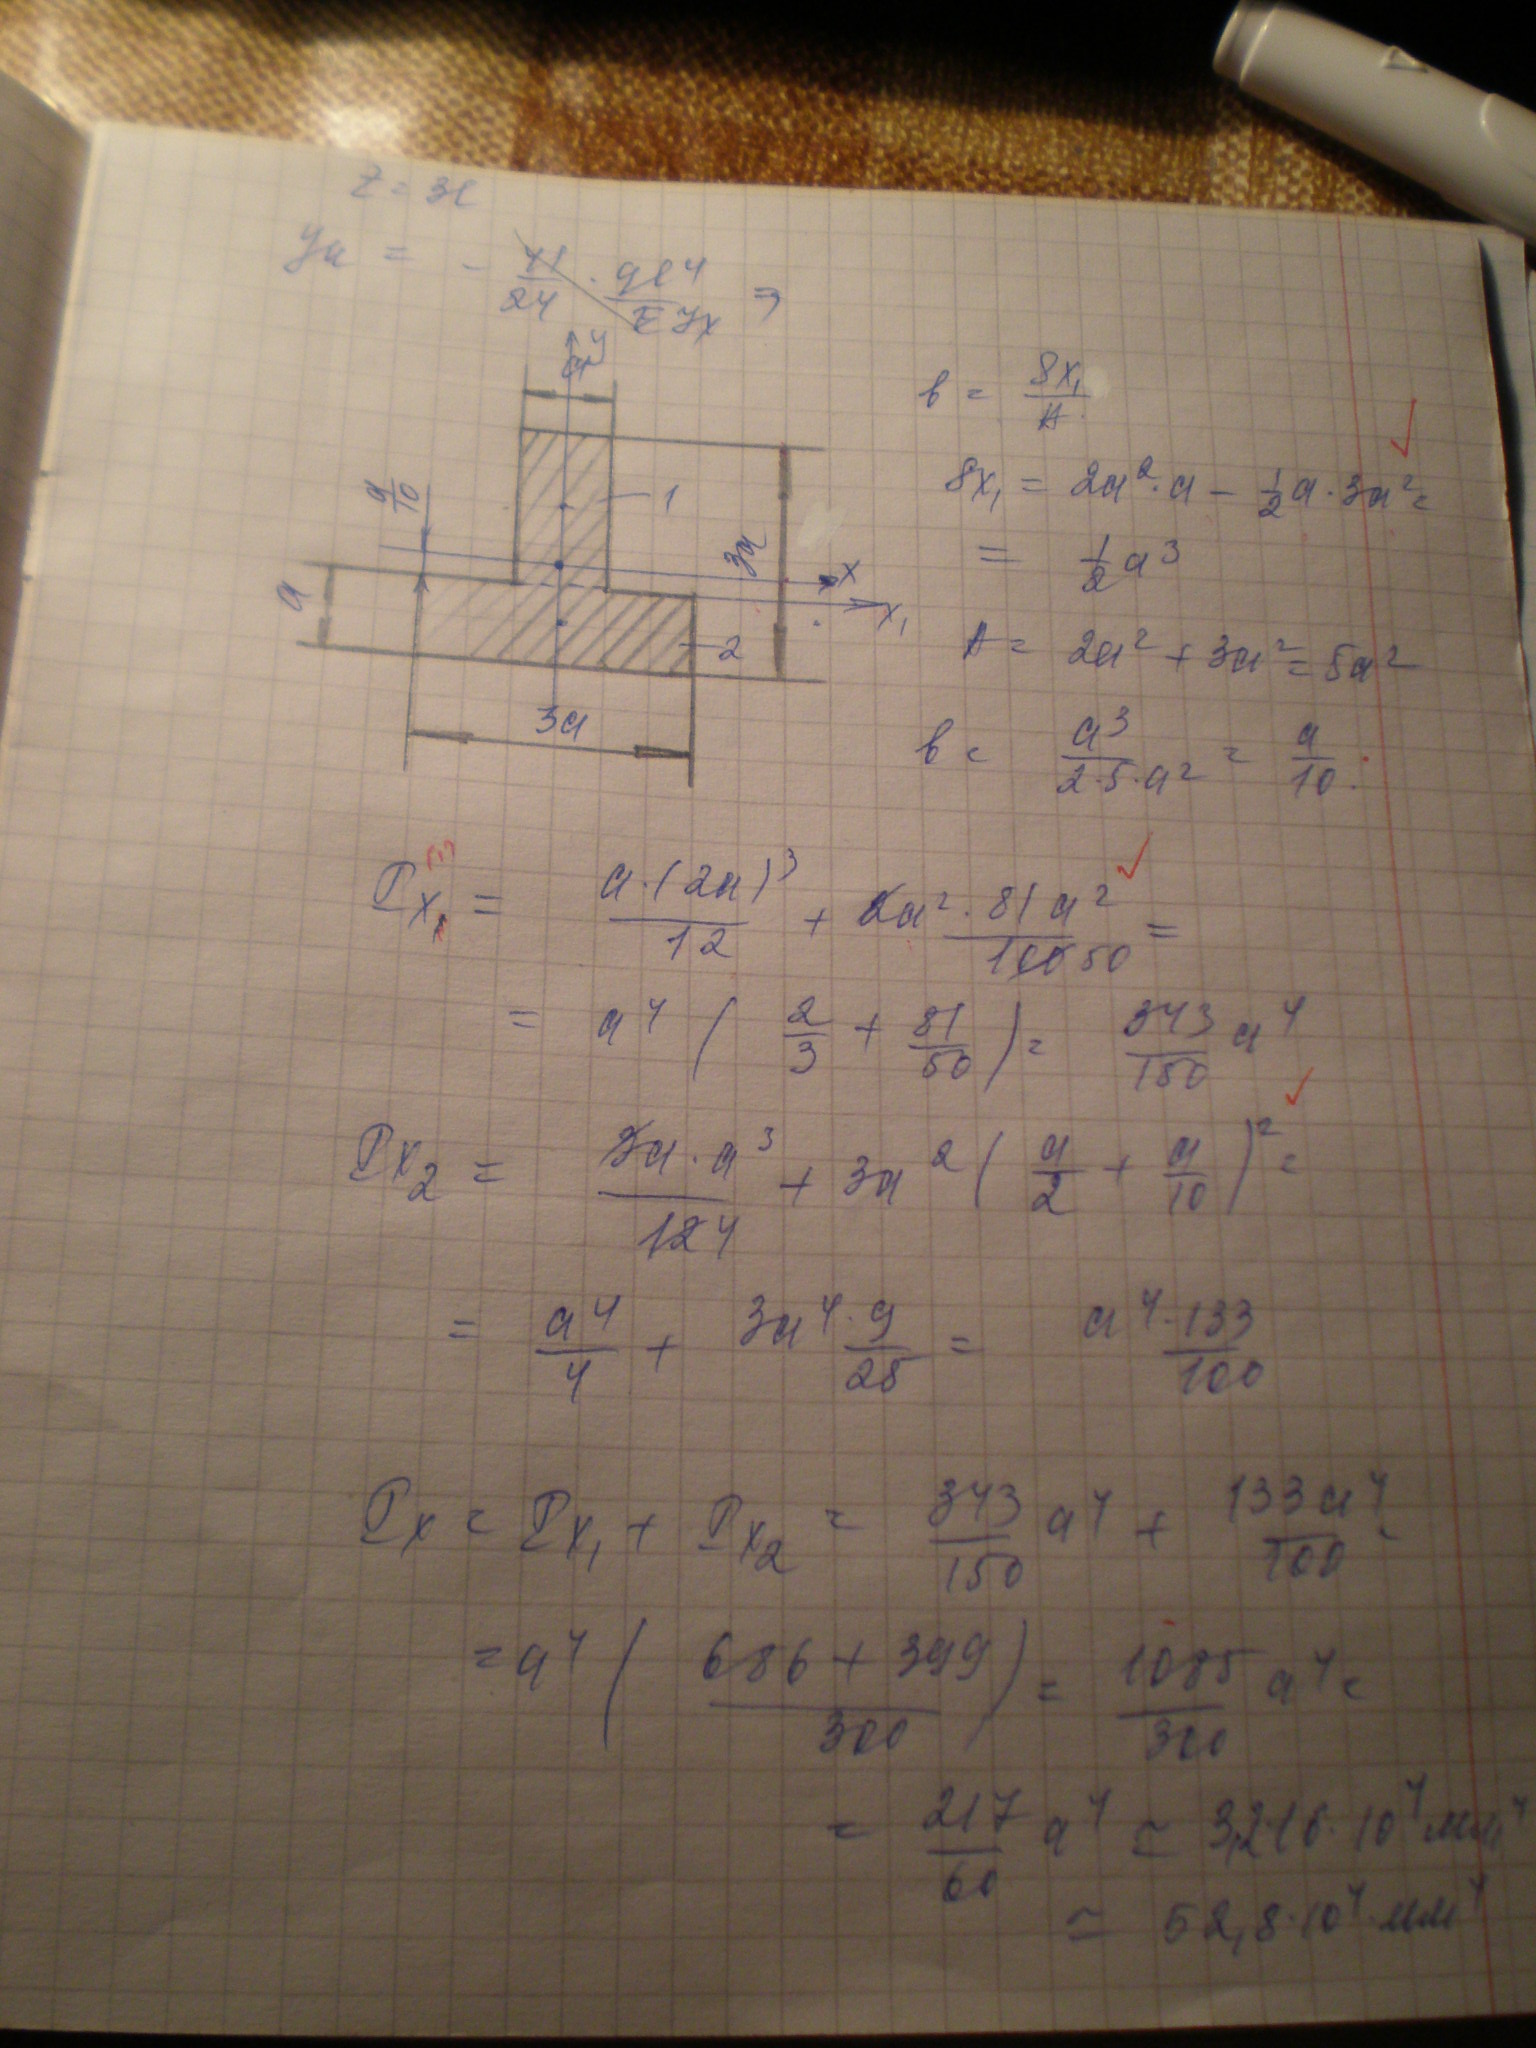 z = 3l
yк = - 41/24 · ql⁴/EJx ⇒
y
a
a/10
1
3a
x
x₁
a
2
3a
b = Sx₁/A
Sx₁ = 2a²·a - 1/2 a·3a² =
= 1/2 a³
A = 2a² + 3a² = 5a²
b = a³/(2·5·a²) = a/10.
Jx₁⁽¹⁾ = a·(2a)³/12 + 2a²·81a²/100 50 =
= a⁴ ( 2/3 + 81/50 ) = 343/150 a⁴
Jx₂ = 3a·a³/12 4 + 3a² ( a/2 + a/10 )² =
= a⁴/4 + 3a⁴·9/25 = a⁴·133/100
Jx = Jx₁ + Jx₂ = 343/150 a⁴ + 133a⁴/100 =
= a⁴ ( (686 + 399)/300 ) = 1085/300 a⁴ =
= 217/60 a⁴ ≃ 3,216·10⁴ мм⁴
≃ 52,8·10⁴ мм⁴